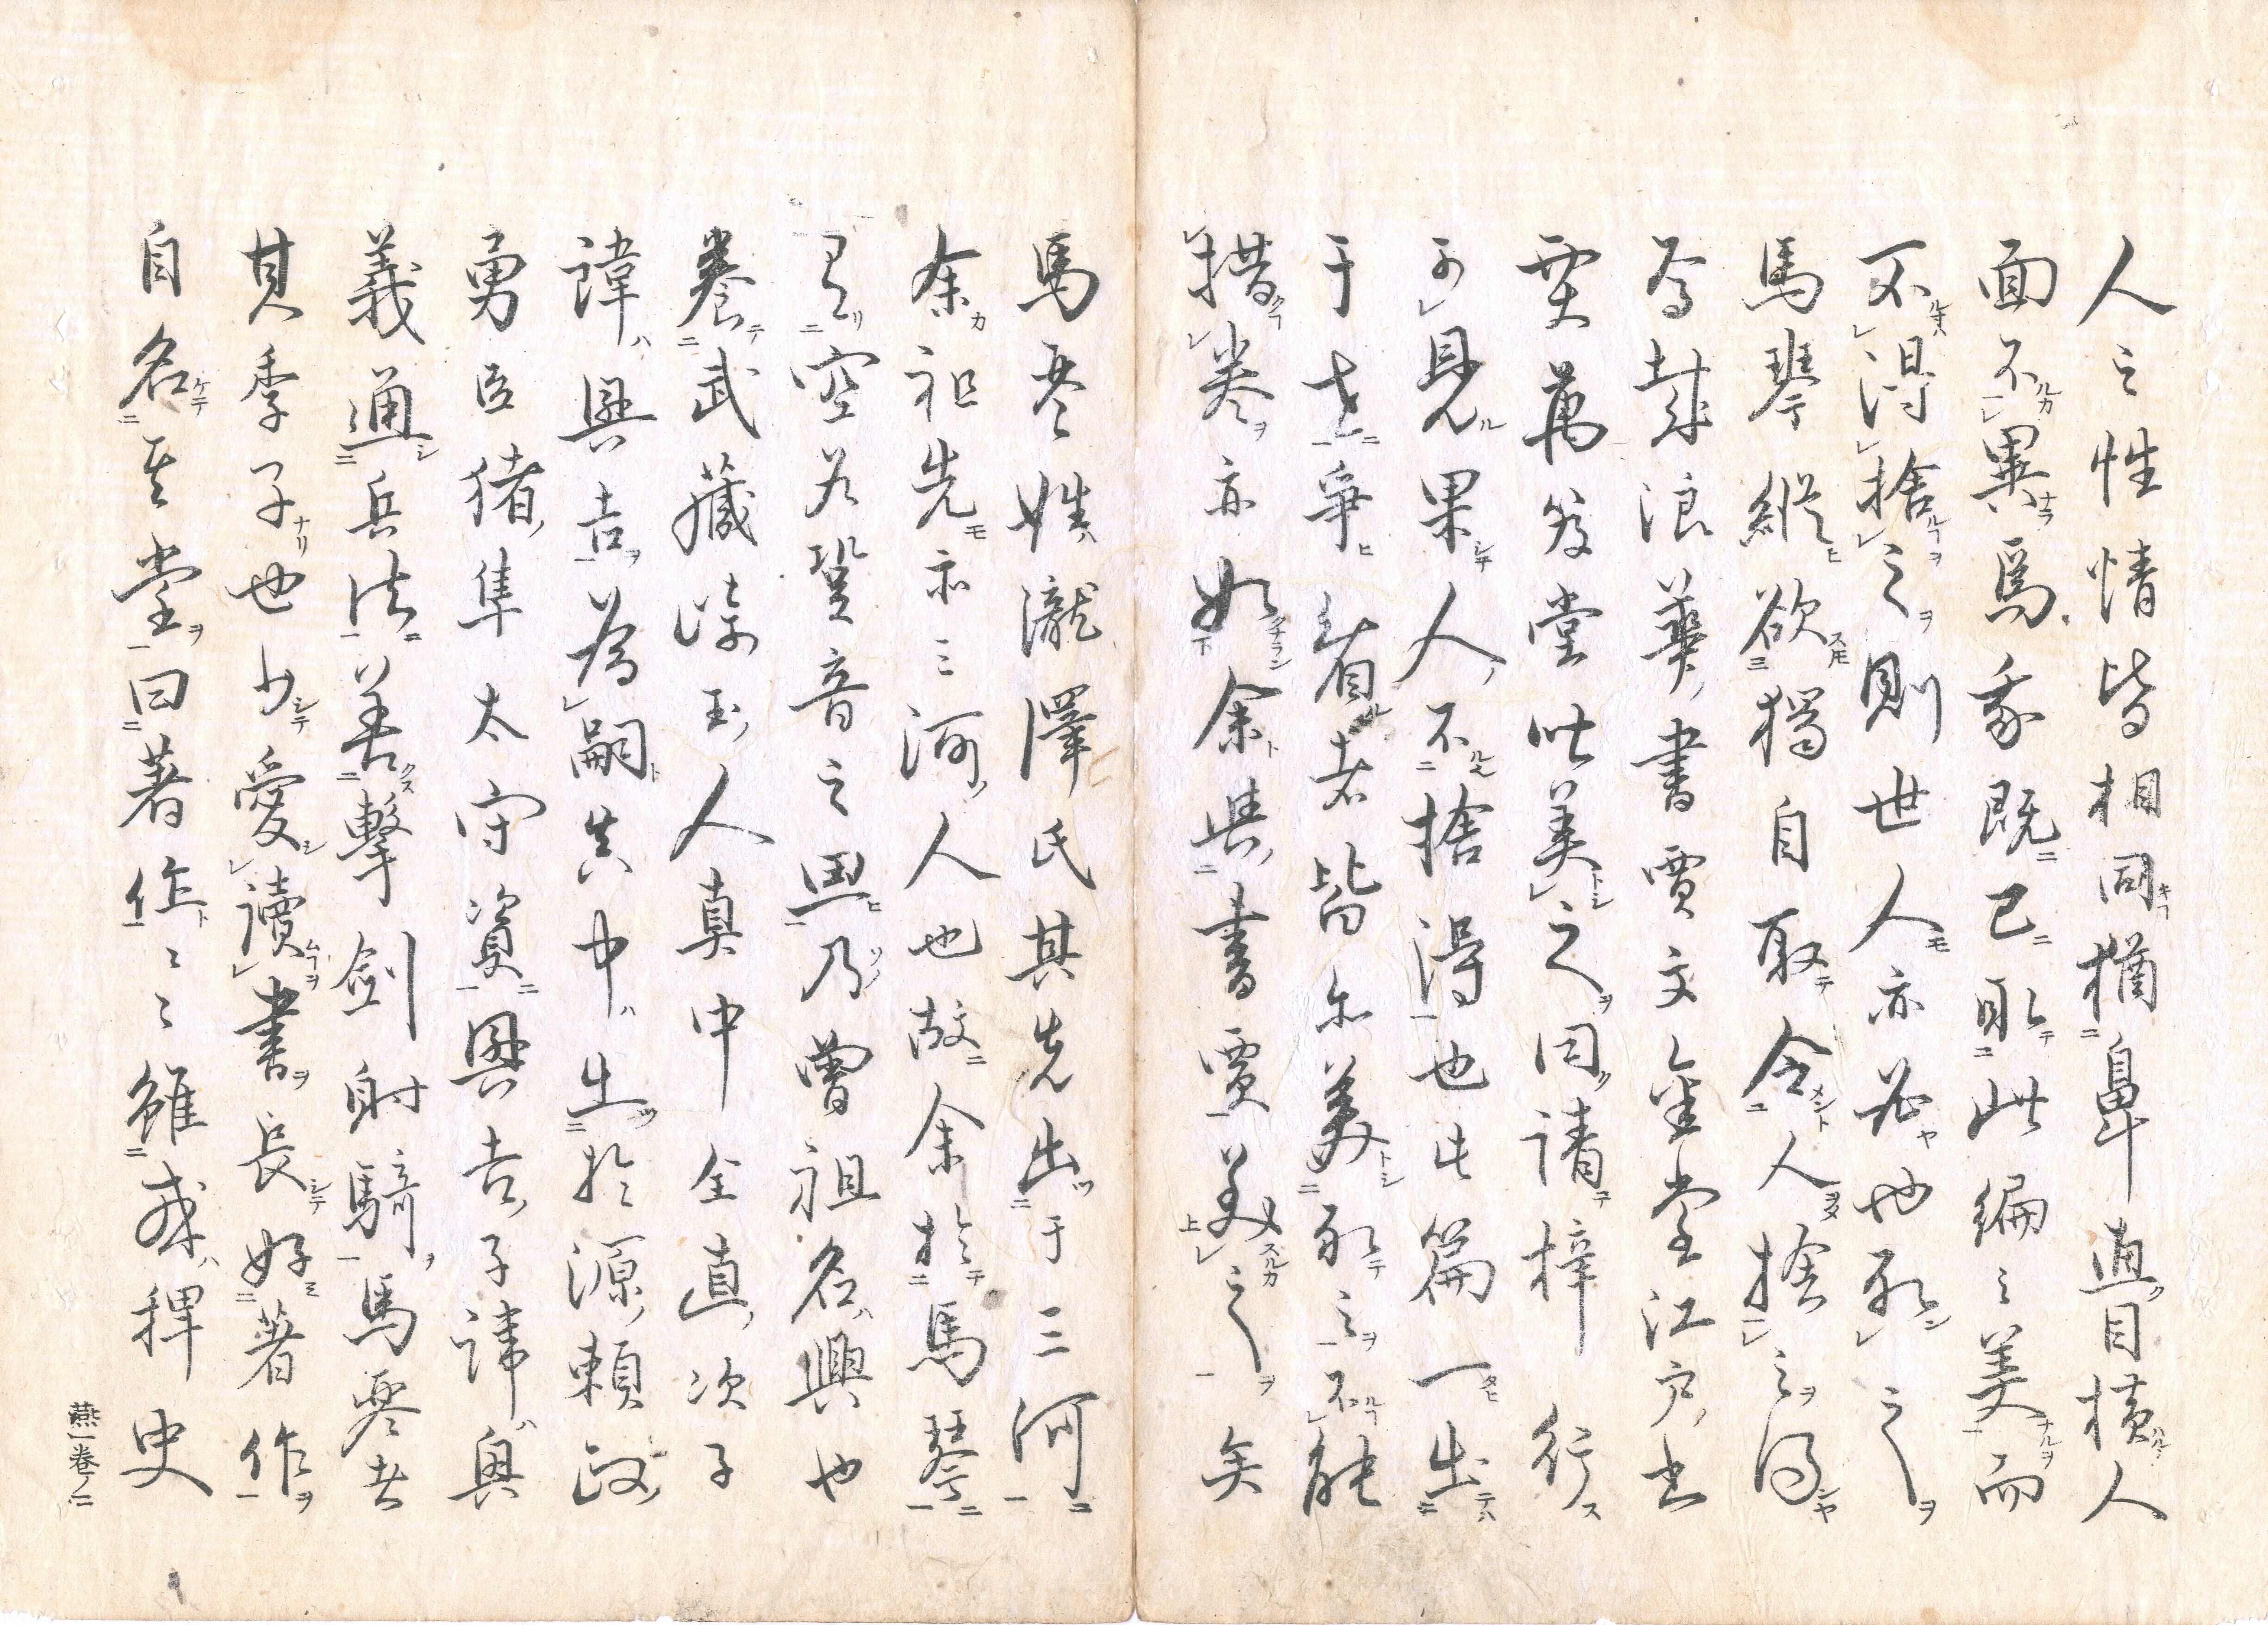 人之性情皆相同猶鼻直目横人
面不異焉我既已取此編之美而
不得捨之則世人亦必也取之
馬琴縱欲獨自取令人捨之得
為哉浪華書賈文金堂江戸書
賈萬笈堂此美之同請梓行
可見果人不捨得也此篇一出
于世爭看者皆尓美取之不能
措巻亦如余與書賈美之矣
馬琴姓瀧澤氏其先出于三河
余祖先亦三河人也故余於馬琴
有空谷跫音之思乃曾祖名興也
養武藏埼玉人真中全直次子
諱興吉為嗣真中生於源頼政
勇臣猪隼太守資興吉子諱興
義通兵法善撃劍射騎馬琴者
其季子也少愛讀書長好著作
自名其堂曰著作々々雖戯稗史
燕一巻ノ二